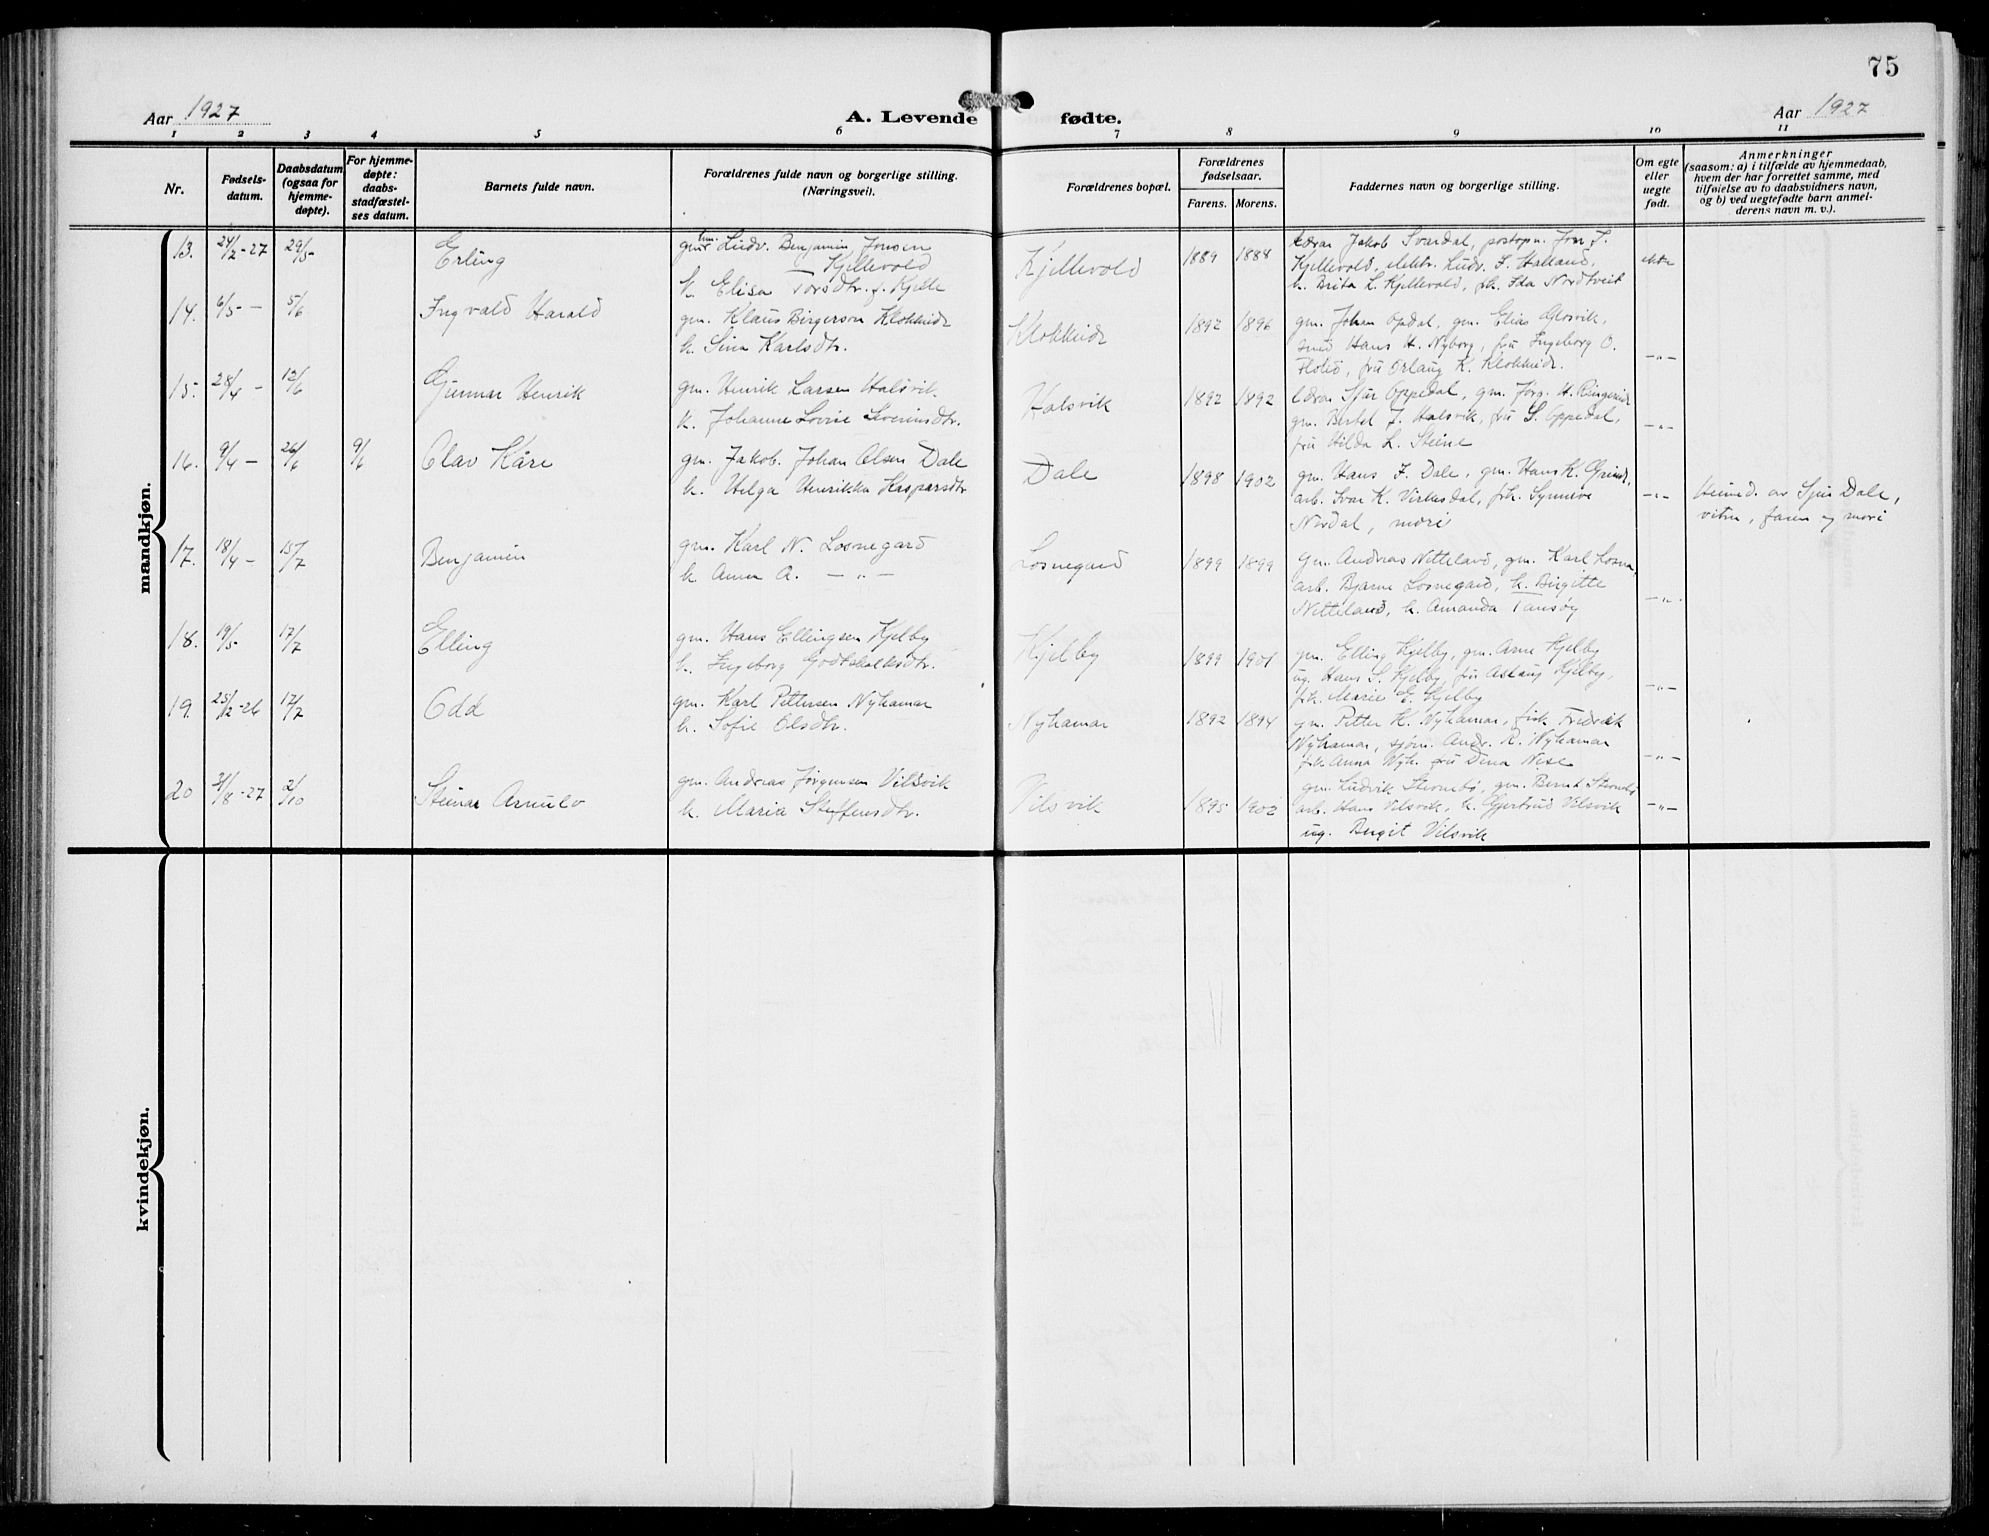 75
Aar 1927
A. Levende fødte.
Aar 1927
1 2 3 4 5 6 7 8 9 10 11
Nr.
Fødsels-
datum.
Daabsdatum
(ogsaa for
hjemme-
døpte).
For hjemme-
døpte:
daabs-
stadfæstel-
ses datum.
Barnets fulde navn.
Forældrenes fulde navn og borgerlige stilling.
(Næringsvei).
Forældrenes bopæl.
Forældrenes
fødselsaar.
Farens. Morens.
Faddernes navn og borgerlige stilling.
Om egte
eller
uegte
født.
Anmerkninger
(saasom: a) i tilfælde av hjemmedaab,
hvem der har forrettet samme, med
tilføielse av to daabsvidners navn,
og b) ved uegtefødte barn anmel-
derens navn m. v.).
mandkjøn.
13. 24/2-27 29/5- Erling
Ludv. Benjamin Jonsen
— Kjellevold
k. Elisa Torsdtr. f. Kjelle
Kjellevold 1889 1888
lærar Jakob Svardal, postopn. Jon J.
Kjellevold, elektr. Ludv. J. Halland,
k. Brita L. Kjellevold, frk. Ida Nordtveit
ekte
14. 6/5- — 5/6 Ingvald Harald
gm. Klaus Birgerson Klokkeide
k. Sina Karlsdtr.
Klokkeide 1892 1896
gm. Johan Opdal, gm. Elias Glosvik,
smed Hans H. Nyborg, fru Ingeborg O.
Flolid, fru Orlaug K. Klokkeide.
—"—
15. 28/4 — 12/6 Gunnar Henrik
gm. Henrik Larsen Halsvik.
k. Johanne Lovise Severinsdtr.
Halsvik 1892 1892
lærar Sjur Oppedal, gm. Jørg. H. Ringereide
gm. Bertel J. Halsvik, fru S. Oppedal,
fru Hilda L. Steine
—"—
16. 9/4 — 26/6 9/6 Olav Kåre
gm. Jakob Johan Olsen Dale
k. Helga Henrikka Kasparsdtr
Dale 1898 1902
gm. Hans J. Dale, gm. Hans K. Grinde,
arb. Ivar K. Virkesdal, frk. Synneve
Nordal, mori
—"—
Heimed. av Sjur Dale,
vitne, faren og mori
17. 18/4 — 15/7 Benjamin
gm. Karl N. Losnegard
k. Anna A. —"—
Losnegard 1899 1899
Gm. Andreas Nitteland, gm. Karl Losna,
arb. Bjarne Losnegard, k. Birgitte
Nitteland, k. Amanda Tansøy
—"—
18. 19/5- 17/7 Elling
gm. Hans Ellingsen Kjelby
k. Ingeborg Godtskalksdtr.
Kjelby 1899 1901
gm. Elling Kjelby, gm. Arne Kjelby
ug. Hans S. Kjelby, fru Aslaug Kjelby,
frk. Marie E. Kjelby
—"—
19. 25/12-26 17/7 Odd
gm. Karl Pettersen Nyhamar
k. Sofie Olsdtr.
Nyhamar 1892 1894
gm. Petter K. Nyhamar, fisk. Fredrik
Nyhamar, sjøm. Andr. R. Nyhamar
frk. Anna Nyh. fru Dena Nese
—"—
20 31/8-27 2/10 Steinar Arnulv
gm. Andreas Jørgensen Vilsvik
k. Maria Steffensdtr.
Vilsvik 1895 1902
gm. Ludvik Sternebø, gm. Bernt Sternebø
arb. Hans Vilsvik, k. Gjertrud Vilsvik
ug. Bergit Vilsvik
—"—
kvindekjøn.